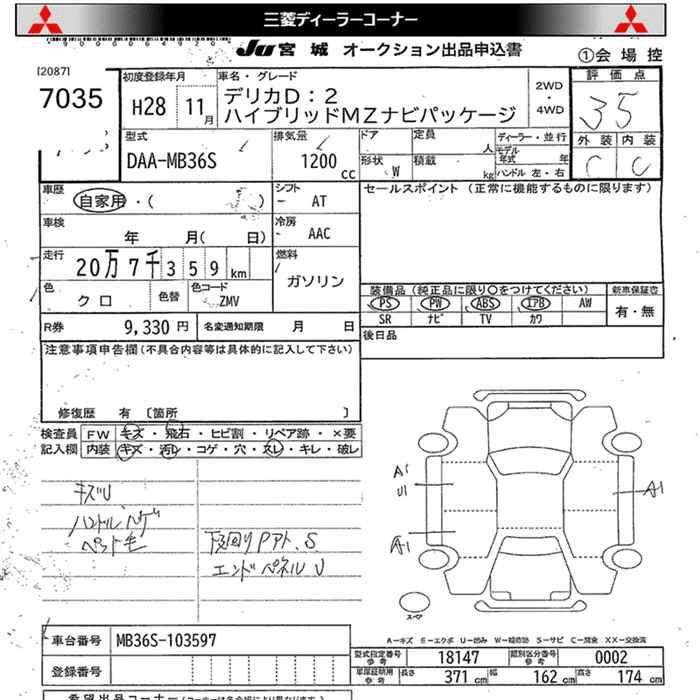 三菱ディーラーコーナー
JU宮城 オークション出品申込書
①会場控
[2087]
7035
初度登録年月
H28 11月
車名・グレード
デリカD:2
ハイブリッドMZナビパッケージ
2WD・4WD
評価点
35
外装 内装
C C
型式
DAA-MB36S
排気量
1200cc
ドア
形状 W
定員 人
積載 kg
ディーラー・並行
モデル年式 年
ハンドル 左・右
車歴
自家用・(
シフト
AT
セールスポイント (正常に機能するものに限ります)
車検
年 月( 日)
冷房
AAC
走行
20万7千359km
燃料
ガソリン
色
クロ
色替
色コード
ZMV
装備品 (純正品に限り○をつけてください)
新車保証書
PS PW ABS エアB AW
SR ナビ TV カワ
有・無
R券 9,330円
名変通知期限 月 日
後日品
注意事項申告欄(不具合内容等は具体的に記入して下さい)
修復歴 有 〔箇所 〕
検査員記入欄
FW キズ・飛石・ヒビ割・リペア跡・×要
内装 キズ・汚レ・コゲ・穴・スレ・キレ・破レ
キズU
ハンドルハゲ
ペット毛
下回りPアト、S
エンドパネルU
A1
U1
A1
A1
スペア
A-キズ E-エクボ U-凹み W-補修跡 S-サビ C-腐食 XX-交換済
車台番号 MB36S-103597
登録番号
型式指定番号 参考 18147
類別区分番号 参考 0002
車庫証明用 参考 長さ 371cm 幅 162cm 高さ 174cm
希望出品コーナー